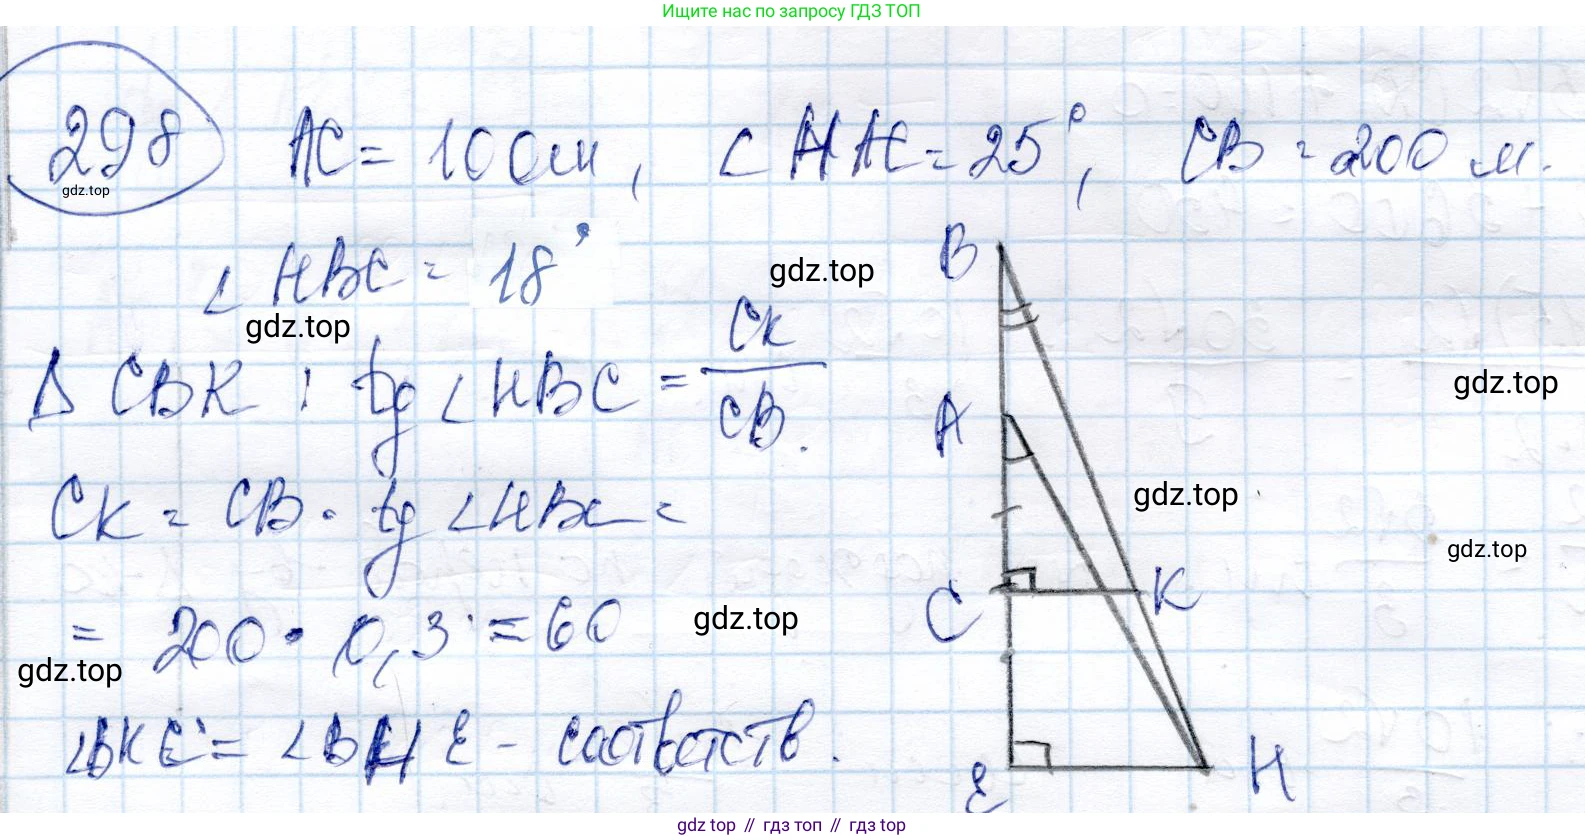 Ищите нас по запросу ГДЗ ТОП
298 AC = 100 м, ∠HAC = 25°, CB = 200 м.
gdz.top
∠HBC = 18°
gdz.top
gdz.top
Δ CBK : tg ∠HBC = CK / CB.
gdz.top
CK = CB · tg ∠HBC =
gdz.top
gdz.top
= 200 · 0,3 = 60
gdz.top
gdz.top
∠BKC = ∠BHE - соответств.
B
A
C
K
E
H
gdz top // гдз топ // gdz top